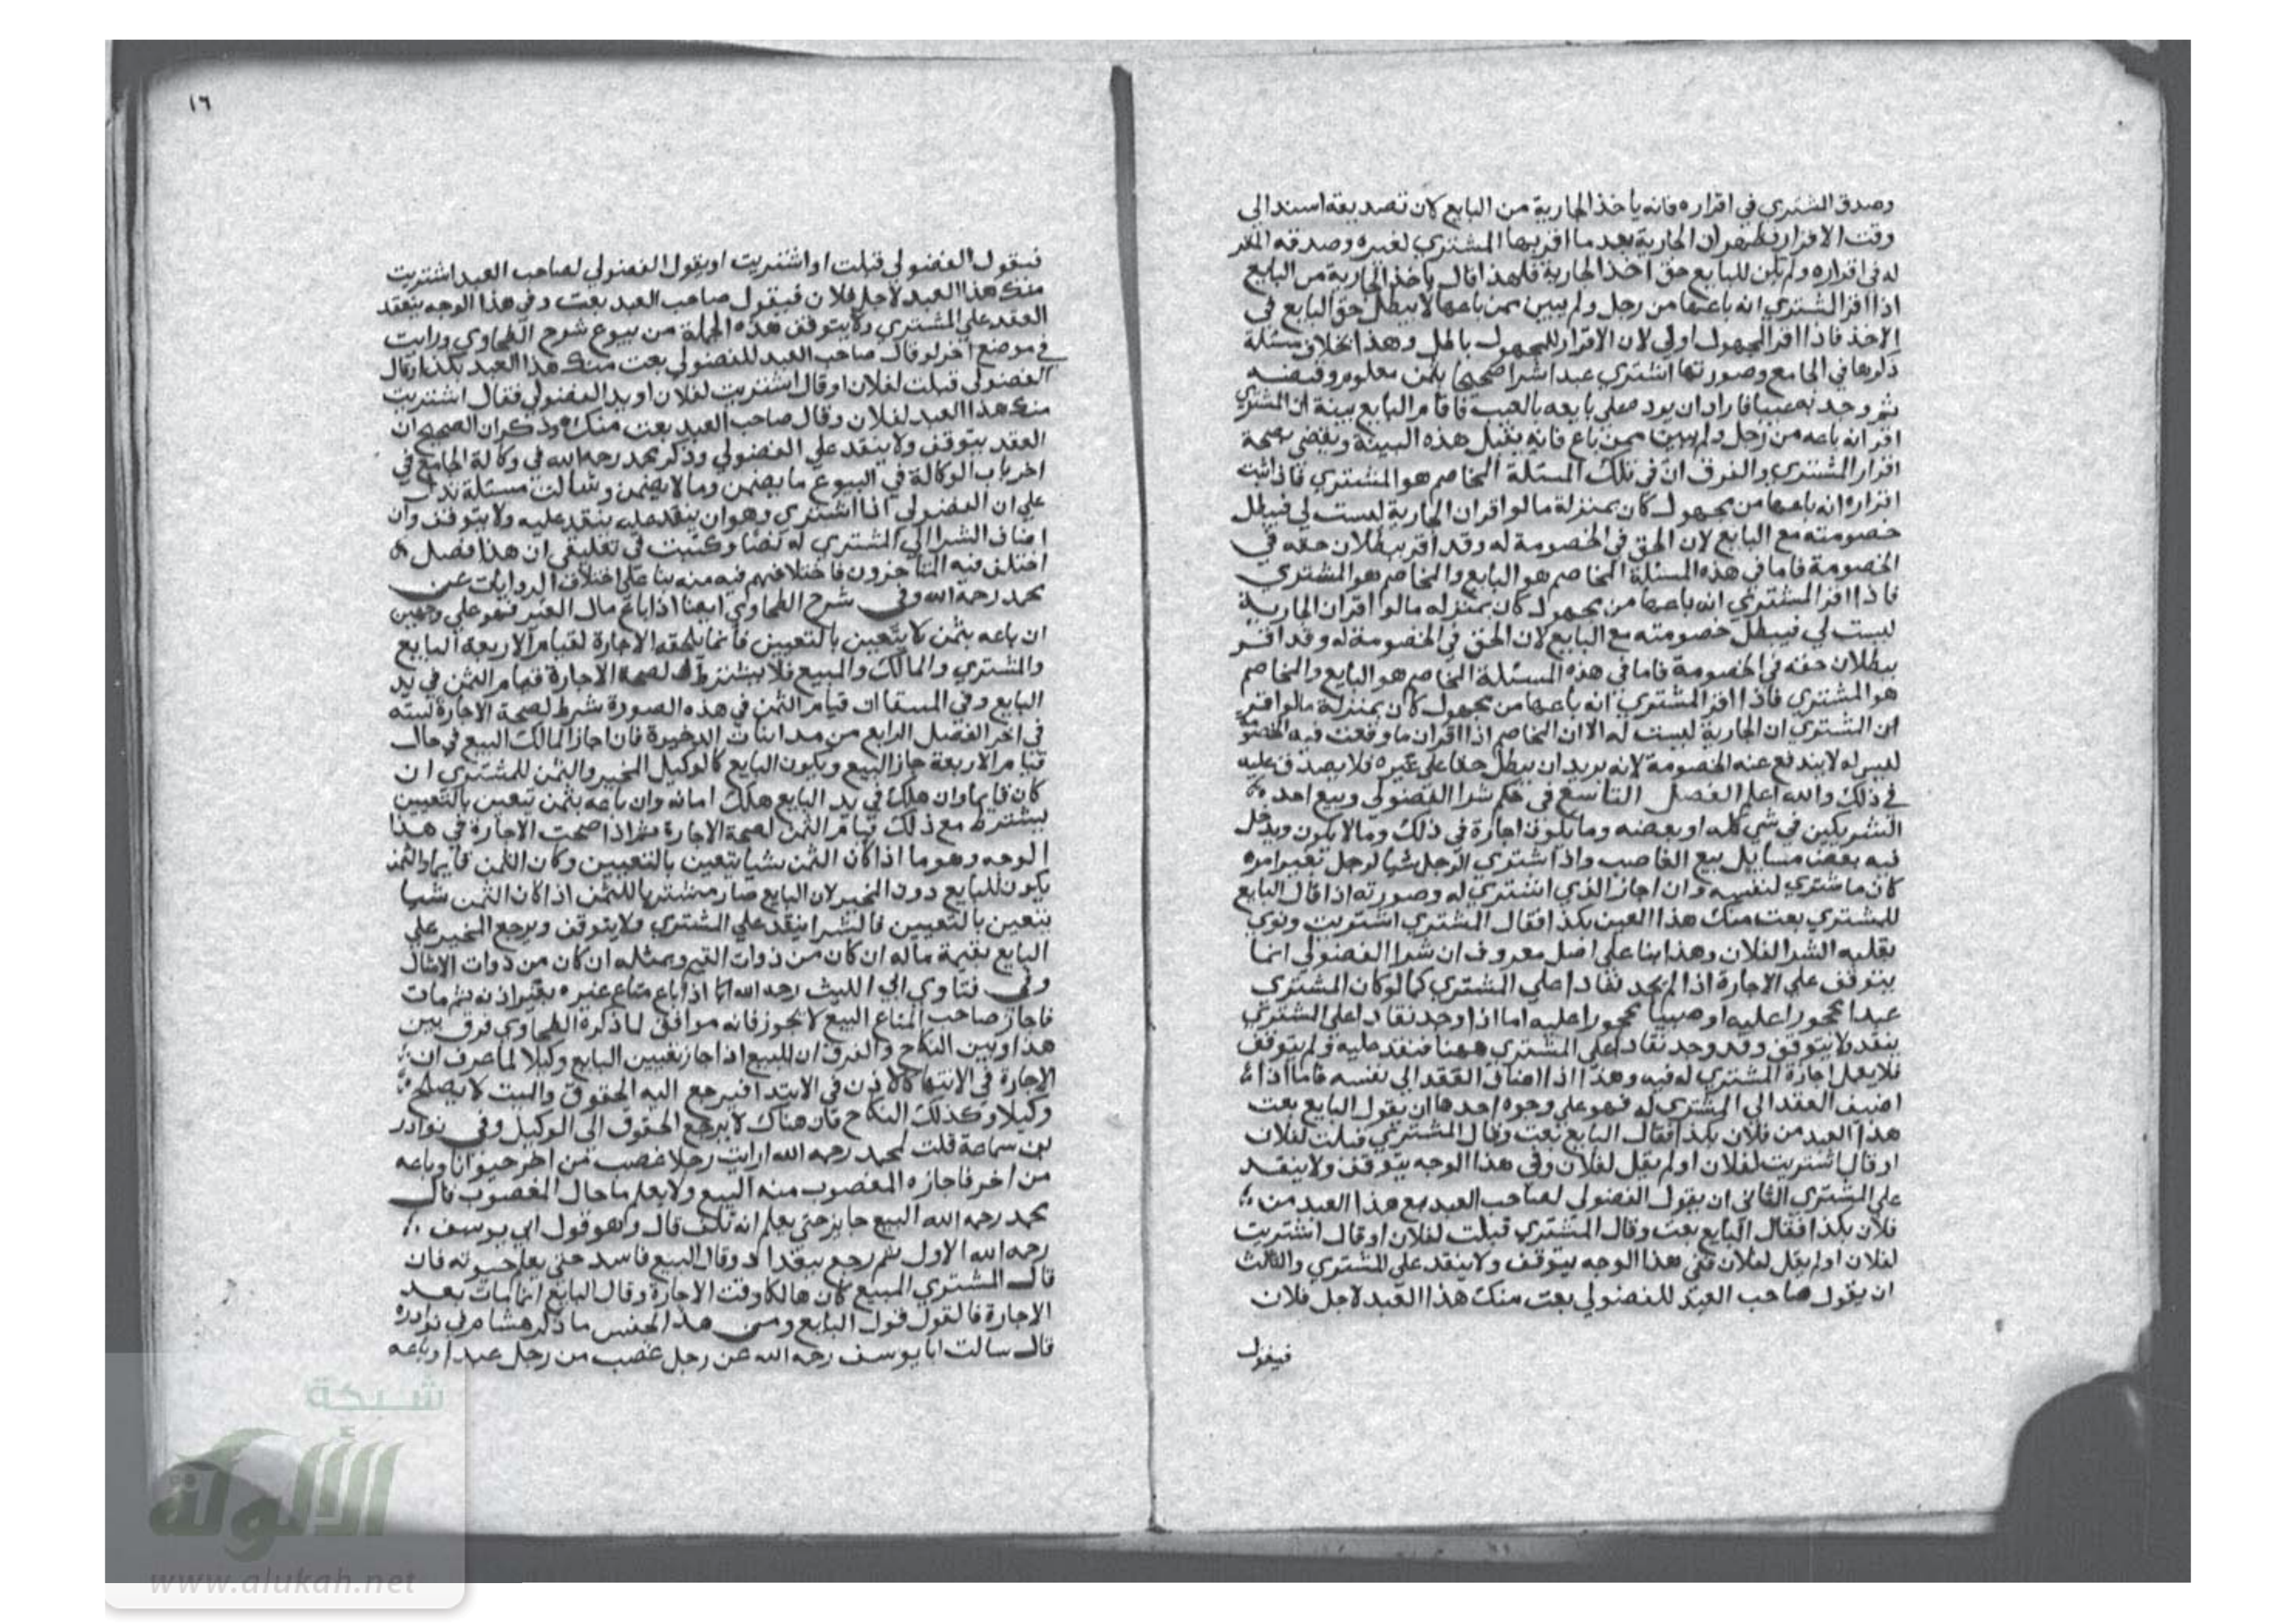 وصدق المشتري في اقراره فانه ياخذ الجارية من البايع لان تصديقه استند الي
وقت الاقرار فظهر ان الجارية بعد ما اقر بها المشتري لغيره وصدقه المقر
له في اقراره ولم يكن للبايع حق اخذ الجارية فلهذا قال ياخذ الجارية من البايع
اذا اقر المشتري انه باعها من رجل ولم يبين ممن باعها لا يبطل حق البايع في
الاخذ فاذا اقر لمجهول اولي لان الاقرار للمجهول باطل وهذا بخلاف مسئلة
ذكرها في الجامع وصورتها اشتري عبدا شرا صحيحا بثمن معلوم وقبضه
ثم وجد به عيبا فاراد ان يرده علي بايعه بالعيب فاقام البايع بينة ان المشتري
اقر انه باعه من رجل ولم يبين ممن باع فانه يقبل هذه البينة ويقضي بصحة
اقرار المشتري والفرق ان في تلك المسئلة المخاصم هو المشتري فاذا ثبت
اقراره انه باعها من مجهول كان بمنزلة ما لو اقر ان الجارية ليست لي فيبطل
خصومته مع البايع لان الحق في الخصومة له وقد اقر ببطلان حقه في
الخصومة فاما في هذه المسئلة المخاصم هو البايع والمخاصم هو المشتري
فاذا اقر المشتري انه باعها من مجهول كان بمنزله ما لو اقر ان الجارية
ليست لي فيبطل خصومته مع البايع لان الحق في الخصومة له وقد اقر
ببطلان حقه في الخصومة فاما في هذه المسئلة المخاصم هو البايع والمخاصم
هو المشتري فاذا اقر المشتري انه باعها من مجهول كان بمنزلة ما لو اقر
ان المشتري ان الجارية ليست له الا ان المخاصم اذا اقر ان ما وقعت فيه الخصومة
ليس له لا يندفع عنه الخصومة لانه يريد ان يبطل حقا علي غيره فلا يصدق عليه
في ذلك والله اعلم الفصل التاسع في حكم شرا الفضولي وبيع احد
الشريكين في شي كله او بعضه وما يكون اجازة في ذلك وما لا يكون ويدخل
فيه بعض مسايل بيع الغاصب واذا اشتري الرجل شيا لرجل بغير امره
كان ما شتري لنفسه وان اجاز الذي اشتري له وصورته اذا قال البايع
للمشتري بعت منك هذا العين بكذا فقال المشتري اشتريت ونوي
بقلبه الشرا لفلان وهذا بنا علي اصل معروف ان شرا الفضولي انما
يتوقف علي الاجازة اذا لم يجد نفاذا علي المشتري كما لو كان المشتري
عبدا محجورا عليه او صبيا محجورا عليه اما اذا وجد نفاذا علي المشتري
ينفذ ولا يتوقف وقد وجد نفاذا علي المشتري ههنا فنفذ عليه ولم يتوقف
فلا يعمل اجازة المشتري له فيه وهذا اذا اضاف العقد الي نفسه فاما اذا
اضيف العقد الي المشتري له فهو علي وجوه احدها ان يقول البايع بعت
هذا العبد من فلان بكذا فقال البايع بعت وقال المشتري قبلت لفلان
او قال اشتريت لفلان او لم يقل لفلان وفي هذا الوجه يتوقف ولا ينفذ
علي المشتري الثاني ان يقول الفضولي لصاحب العبد بع هذا العبد من
فلان بكذا فقال البايع بعت وقال المشتري قبلت لفلان او قال اشتريت
لفلان او لم يقل لفلان ففي هذا الوجه يتوقف ولا ينفذ علي المشتري والثالث
ان يقول صاحب العبد للفضولي بعت منك هذا العبد لاجل فلان
فيقول
١٦
فيقول الفضولي قبلت او اشتريت او يقول الفضولي لصاحب العبد اشتريت
منك هذا العبد لاجل فلان فيقول صاحب العبد بعت وفي هذا الوجه ينعقد
العقد علي المشتري ولا يتوقف هذه الجملة من بيوع شرح الطحاوي ورايت
في موضع اخر لو قال صاحب العبد للفضولي بعت منك هذا العبد بكذا وقال
الفضولي قبلت لفلان او قال اشتريت لفلان او بدا الفضولي فقال اشتريت
منك هذا العبد لفلان وقال صاحب العبد بعت منك وذكر ان الصحيح ان
العقد يتوقف ولا ينفذ علي الفضولي وذكر محمد رحمه الله في وكالة الجامع في
اخر باب الوكالة في البيوع ما يضمن وما لا يضمن مسئلة تدل
علي ان الفضولي اذا اشتري وهو ان ينفذ عليه ينفذ عليه ولا يتوقف وان
اضاف الشرا الي المشتري له نصا وكتبت في تعليقي ان هذا فصل
اختلف فيه المتاخرون فاختلافهم فيه منه بنا علي اختلاف الروايات عن
محمد رحمه الله وفي شرح الطحاوي ايضا اذا باع مال الغير فهو علي وجهين
ان باعه بثمن لا يتعين بالتعيين فانما يلحقه الاجازة لقيام الاربعة البايع
والمشتري والمالك والمبيع فلا يشترط لصحة الاجازة قيام الثمن في يد
البايع وفي قيام الثمن في هذه الصورة شرط لصحة الاجازة
في اخر الفصل الرابع من مداينات الذخيرة فان اجاز المالك البيع في حال
قيام الاربعة جاز البيع ويكون البايع كالوكيل المجيز والثمن للمشتري ان
كان قايما وان هلك في يد البايع هلك امانه وان باعه بثمن يتعين بالتعيين
يشترط مع ذلك قيام الثمن لصحة الاجازة ثم اذا صحت الاجازة في هذا
الوجه وهو ما اذا كان الثمن شيا يتعين بالتعيين وكان الثمن قايما والثمن
يكون للبايع دون المجيز لان البايع صار مشتريا للثمن اذا كان الثمن شيا
يتعين بالتعيين فالشرا ينفذ علي المشتري ولا يتوقف ويرجع المجيز علي
البايع بقيمة ماله ان كان من ذوات القيم وبمثله ان كان من ذوات الامثال
وفي فتاوي ابي الليث رحمه الله اذا باع متاع غيره بغير اذنه ثم مات
فاجاز صاحب المتاع البيع لا يجوز فانه موافق لما ذكره الطحاوي فرق بين
هذا وبين النكاح والفرق ان المبيع اذا اجاز يتعين البايع وكيلا لما عرف ان
الاجازة في الانتها كالاذن في الابتدا فيرجع اليه الحقوق والميت لا يصلح
وكيلا وكذلك النكاح فان هناك لا يرجع الحقوق الي الوكيل وفي نوادر
بن سماعة قلت لمحمد رحمه الله ارايت رجلا غصب من اخر حيوانا وباعه
من اخر فاجازه المغصوب منه البيع ولا يعلم ما حال المغصوب قال
محمد رحمه الله البيع جايز حتي يعلم انه تلف قال وهو قول ابي يوسف
رحمه الله الاول ثم رجع ببغداد وقال البيع فاسد حتي يعلم حيوته فان
قال المشتري المبيع كان هالكا وقت الاجازة وقال البايع انما مات بعد
الاجازة فالقول قول البايع ومن هذا الجنس ما ذكر هشام في نوادره
قال سالت ابا يوسف رحمه الله عن رجل غصب من رجل عبدا وباعه
شبكة
الألوكة
www.alukah.net